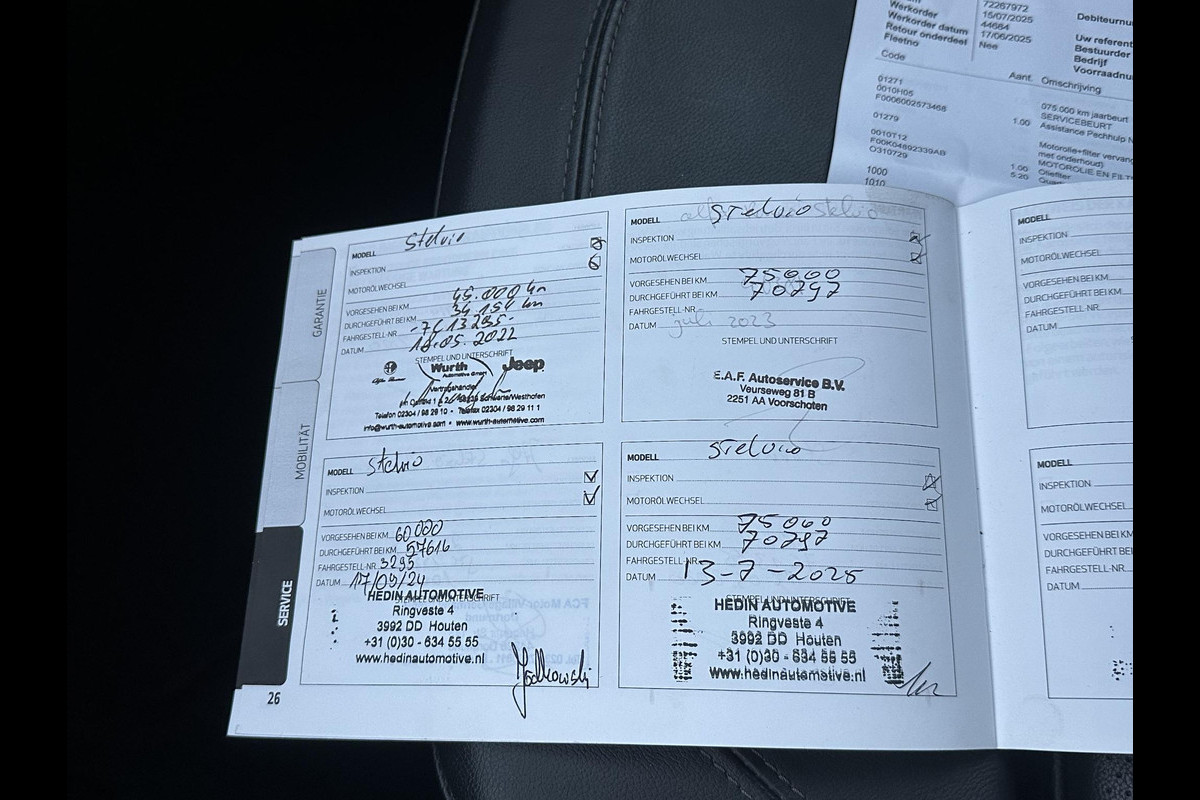 72267972
Werkorder 15/07/2025
Werkorder datum 44684
Retour onderdeel 17/06/2025
Fleetno Nee
Debiteurnu
Uw referent
Bestuurder
Bedrijf
Voorraadnu
Code Aant. Omschrijving
01271 075.000 km jaarbeurt
0010H05 SERVICEBEURT
F0006002573468 1.00 Assistance Pechhulp N
01279
0010T12 Motorolie+filter vervang
F00K04892339AB met onderhoud)
O310729 MOTOROLIE EN FILT
1000 1.00 Oliefilter
1010 5.20
GARANTIE
MOBILITÄT
SERVICE
MODELL Stelvio
INSPEKTION
MOTORÖLWECHSEL
VORGESEHEN BEI KM 45.000 km
DURCHGEFÜHRT BEI KM 34.154 km
FAHRGESTELL-NR. -7C13295-
DATUM 16.05.2022
STEMPEL UND UNTERSCHRIFT
Alfa Romeo
Wurth
Automotive GmbH
Jeep
Vertragshändler
Schwerte/Westhofen
Telefon 02304 / 98 29 10 - Telefax 02304 / 98 29 11 1
info@wurth-automotive.com • www.wurth-automotive.com
MODELL Stelvio
INSPEKTION
MOTORÖLWECHSEL
VORGESEHEN BEI KM 60000
DURCHGEFÜHRT BEI KM 57616
FAHRGESTELL-NR. 3295
DATUM 17/09/24
STEMPEL UND UNTERSCHRIFT
HEDIN AUTOMOTIVE
Ringveste 4
3992 DD Houten
+31 (0)30 - 634 55 55
www.hedinautomotive.nl
26
MODELL Stelvio
INSPEKTION
MOTORÖLWECHSEL
VORGESEHEN BEI KM 75000
DURCHGEFÜHRT BEI KM 70797
FAHRGESTELL-NR.
DATUM juli 2023
STEMPEL UND UNTERSCHRIFT
E.A.F. Autoservice B.V.
Veurseweg 81 B
2251 AA Voorschoten
MODELL Stelvio
INSPEKTION
MOTORÖLWECHSEL
VORGESEHEN BEI KM 75000
DURCHGEFÜHRT BEI KM 70797
FAHRGESTELL-NR.
DATUM 13-7-2025
STEMPEL UND UNTERSCHRIFT
HEDIN AUTOMOTIVE
Ringveste 4
3992 DD Houten
+31 (0)30 - 634 55 55
www.hedinautomotive.nl
MODELL
INSPEKTION
MOTORÖLWECHSEL
VORGESEHEN BEI KM
DURCHGEFÜHRT BEI KM
FAHRGESTELL-NR.
DATUM
MODELL
INSPEKTION
MOTORÖLWECHSEL
VORGESEHEN BEI KM
DURCHGEFÜHRT BEI KM
FAHRGESTELL-NR.
DATUM